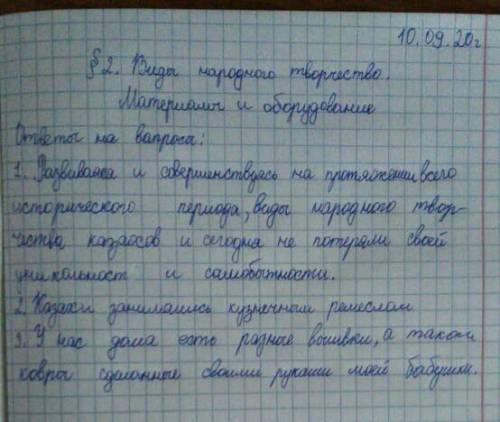 10.09.20г
§2. Виды народного творчество.
Материалы и оборудование
Ответы на вапросы:
1. Развиваяса и совершинствуясь на протяжении всего
исторического периода, виды народного твор-
чиства казахов и сегодня не потеряли своей
уникольност и самобытности.
2. Казахи занимались кузнечным ремеслом
3. У нас дома есть разные вышивки, а также
ковры сделанные своими руками моей бабушки.